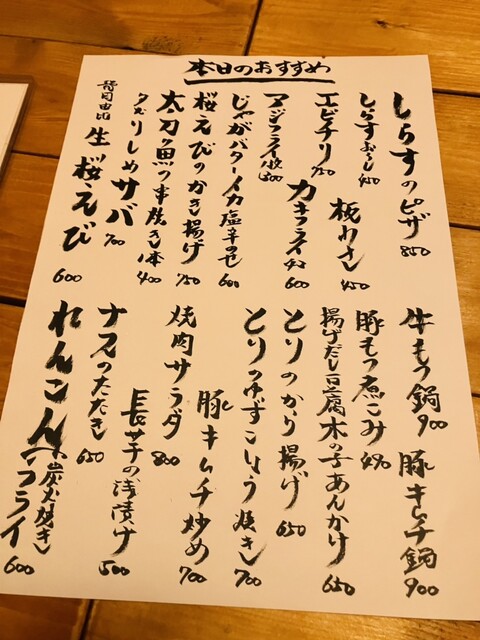 本日のおすすめ
しらすのピザ 850
しらすおろし 450
板わさ 450
エビチリ 750
カキフライ 4コ 600
アジフライ1枚 300
じゃがバターイカ塩辛のせ 600
桜えびのかき揚げ 750
太刀魚の串焼き1本 400
炙りしめサバ 700
静岡由比 生桜えび 600
牛もつ鍋 900
豚キムチ鍋 900
豚もつ煮こみ 490
揚げだし豆腐木の子あんかけ 650
とりのから揚げ 650
とりのゆずこしょう焼き 700
豚キムチ炒め 700
焼肉サラダ 800
長芋の浅漬け 500
ナスのたたき 650
れんこん(炭火焼き フライ 600